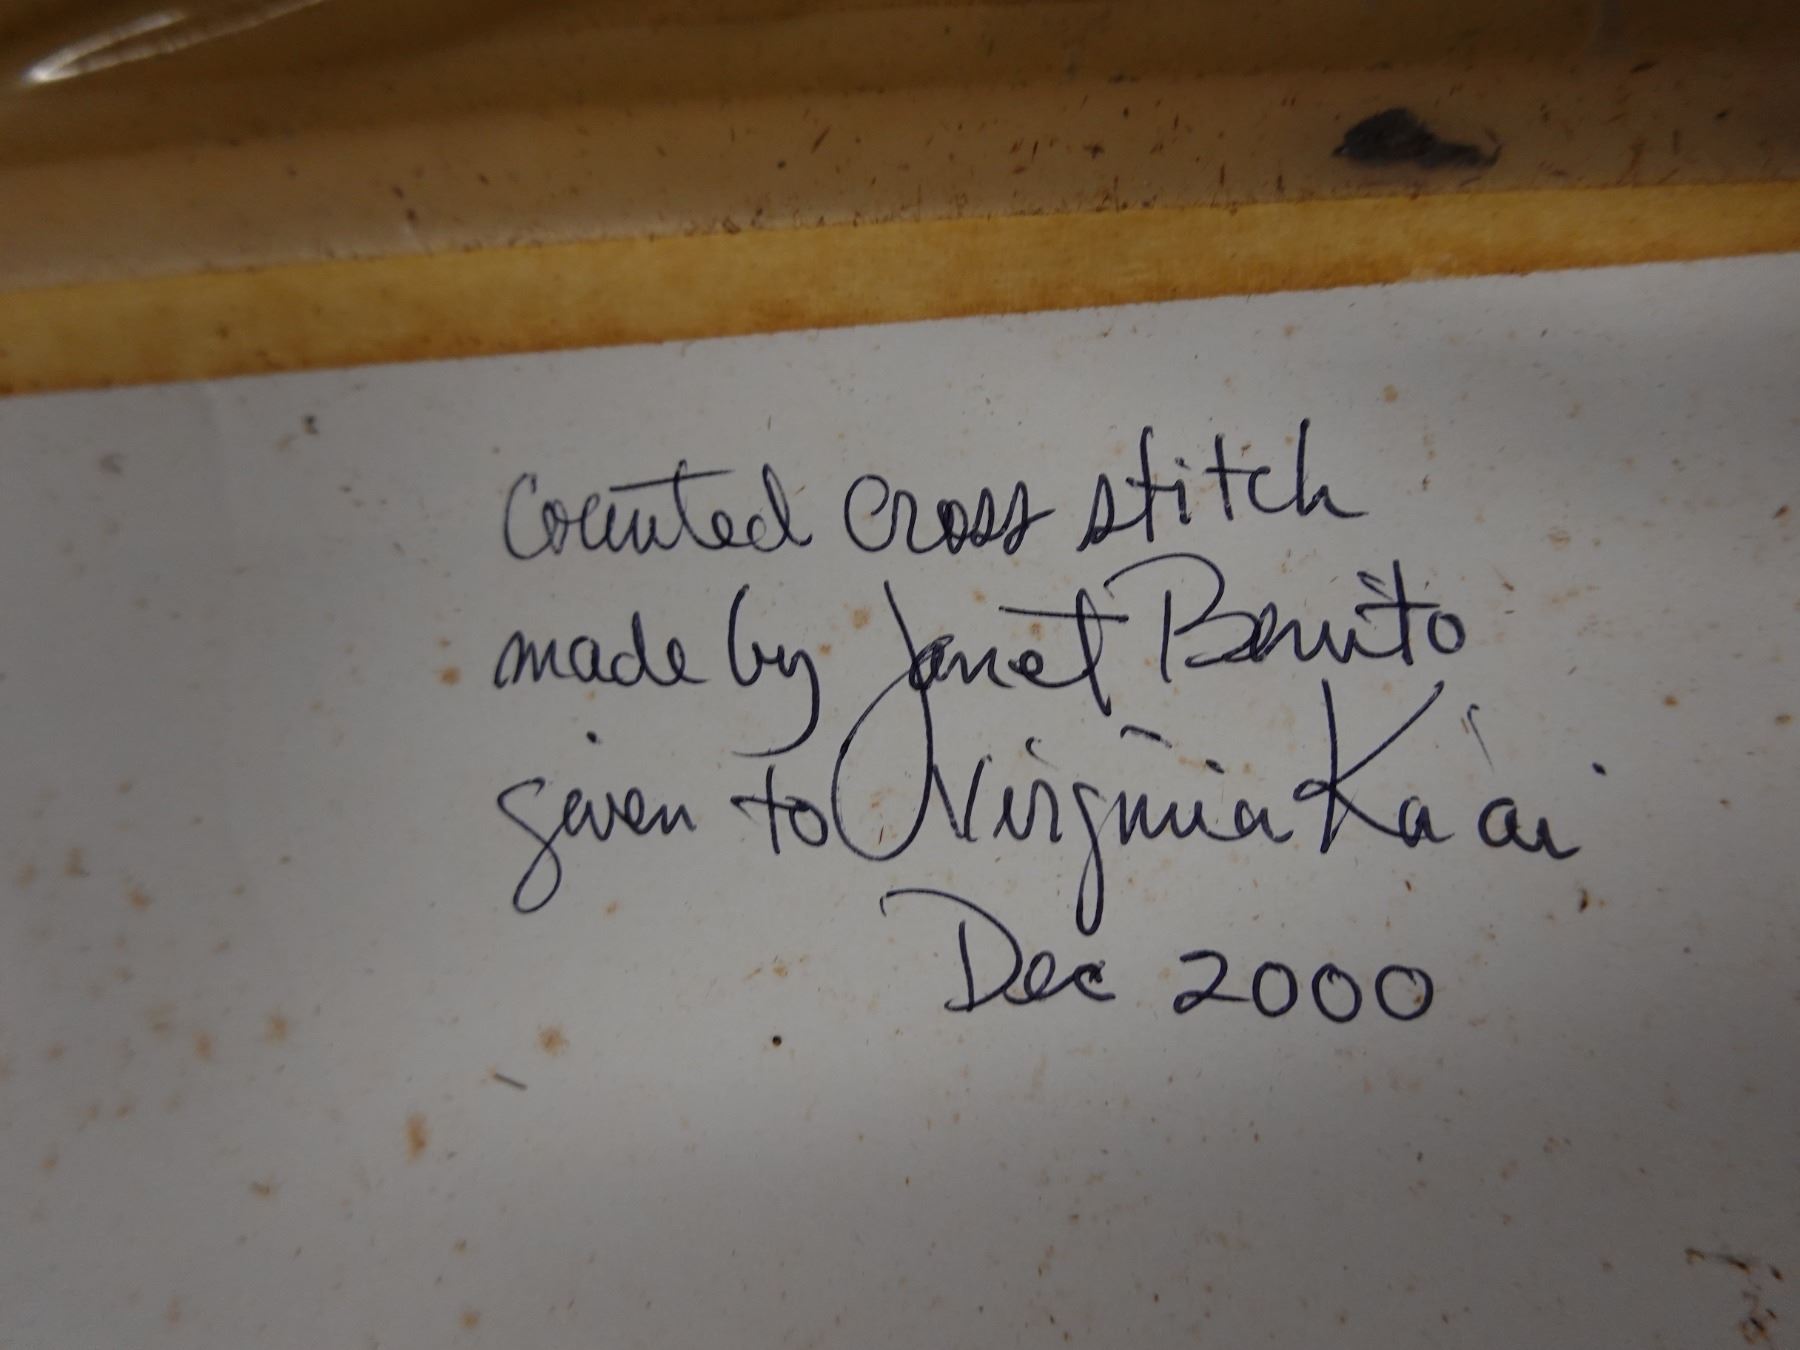 Counted cross stitch
made by Janet Benito
given to Virginia Ka'ai
Dec 2000